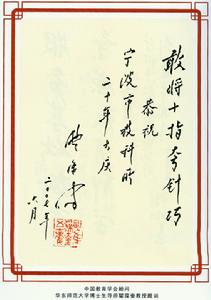 敢将十指夸针巧
恭祝
宁波市教科所
二十年大庆
二〇〇七年
六月
中国教育学会顾问
华东师范大学博士生导师瞿葆奎教授题词